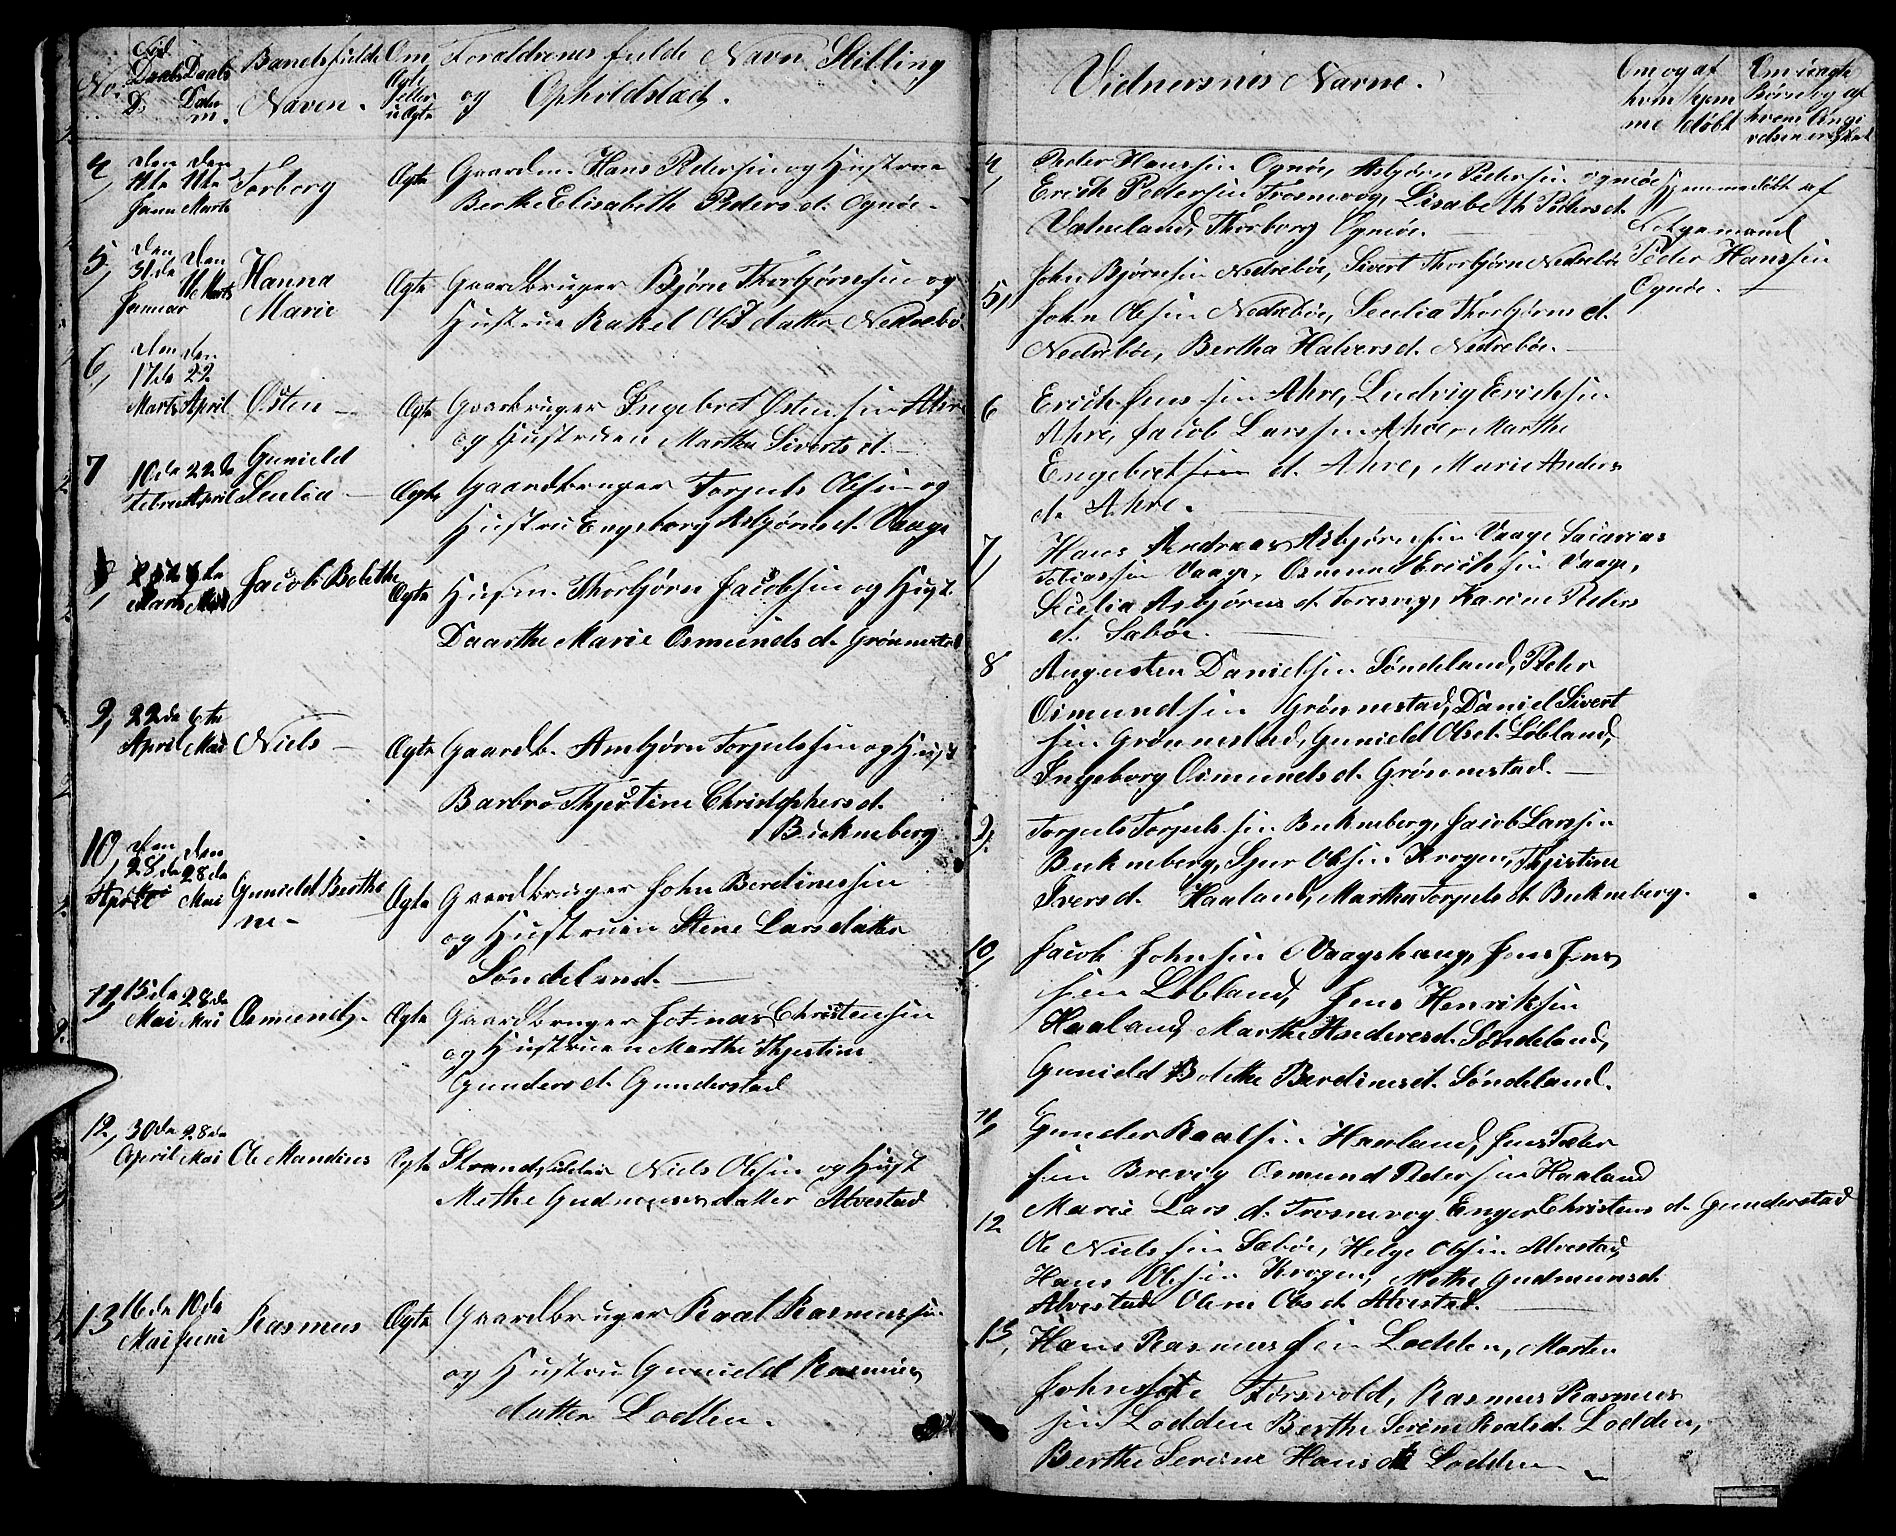 No. Fød Daabs Barnets fulde Om Foraldrenes fulde Navn Stilling
D. Datum Navn. Ægte eller uægte og Opholdstad.
4, den 11te Janu den 11te Marts Torborg Ægte Gaardm. Hans Pedersen og Hustrue
Berthe Elisabeth Peders d. Ognøe.
5, den 31de Januar den 11te Marts Hanna Marie Ægte Gaardbruger Bjørn Thorbjørnsen og
Hustrue Rakel Ols datter Nedrebø.
6, den 17de Marts den 22 April Østen Ægte Gaarbruger Ingebret Østensen Ahre
og Hustruen Martha Siverts d.
7 10de Februar 22de April Gunield Secilia Ægte Gaardbruger Torjuls Olsen og
Hustru Engeborg Asbjørns d. Vaage
8, Marts Mai Jacob Bolethe Ægte Husm. Thorbjørn Jacobsen og Hust.
Daarthe Marie Osmunds d. Grønnestad
9, 22de April 6te Mai Niels Ægte Gaardb. Ambjørn Torjulssen og Hust
Barbro Thjestine Christophers d.
Bukneberg
10, den 28de April den 28de Mai Gunield Berthe Ægte Gaardbruger John Berdinessen
ne og Hustruen Stene Lars datter
Søndeland.
11, 15de Mai 28de Mai Osmund Ægte Gaardbruger Christensen
og Hustruen Marthe Thjestine
Gunders d. Gunderstad
12, 30de April 28de Mai Ole Mandius Ægte Strandsidder Niels Olsen og Hust
Methe Gudmuns datter Alvestad
13 16de Mai 10de Juni Rasmus Ægte Gaardbruger Roal Rasmussen
og Hustru Gunield Rasmus
datter Lodden.
Vidnersnes Navne. Om og af hvem hjemme døbt Om uægte Børn og af hvem
4, Peder Hanssen Ognøe, Asbjørn Pedersen Ognøe Hjemmedøbt af
Erich Pedersen Trosnevog, Lisabeth Peders d.
Vatneland, Thorborg Ognøe. mand
5, John Bjørnsen Nedrebøe, Sivert Thorbjørn Nedrebøe Peder Hanssen
John Olsen Nedrebøe, Secilia Thorbjørns d. Ognøe.
Nedrebøe, Bertha Halvers d. Nedrebøe.
6 Erich Jenssen Ahre, Ludvig Erichsen
Ahre, Jacob Larssen Ahre, Marthe
Engebret d. Ahre, Marie Anders
d. Ahre.
7, Hans Andreas Asbjørnsen Vaage Sacarias
Tobiassen Vaage, Osmund Erichsen Vaage,
Secilia Asbjørns d. Toresvig, Karine Peders
d. Sabøe.
8 Augusten Danielsen Søndeland, Peder
Osmundsen Grønnestad, Daniel Sivert
sen Grønnestad, Gunield Ols d. Løbland,
Ingeborg Osmunds d. Grønnestad.
9. Torjuls Torjulssen Bukneberg, Jacob Larssen
Bukneberg, Sjur Olsen Krogen, Thjestine
Ivers d. Haaland, Martha Torjuls d. Bukneberg.
10, Jacob Johnsen Vaagshaug, Jens Jens
sen Løbland, Jens Henriksen
Haaland, Marthe Anders d. Søndeland,
Gunield Bolethe Berdines d. Søndeland.
11, Gunder Roalsen Haaland, Jens Peder
sen Brevig Osmund Pedersen Haaland
Marie Lars d. Trosnevog Enger Christens d. Gunderstad
12 Ole Nielssen Sabøe, Helge Olsen Alvestad,
Hans Olsen Krogen, Methe Gudmuns d.
Alvestad Oline Ols d. Alvestad.
13, Hans Rasmussen Lodden, Morten
Torsvold, Rasmus Rasmus
sen Lodden Berthe Serine Roals d. Lodden,
Berthe Serine Hans d. Lodden